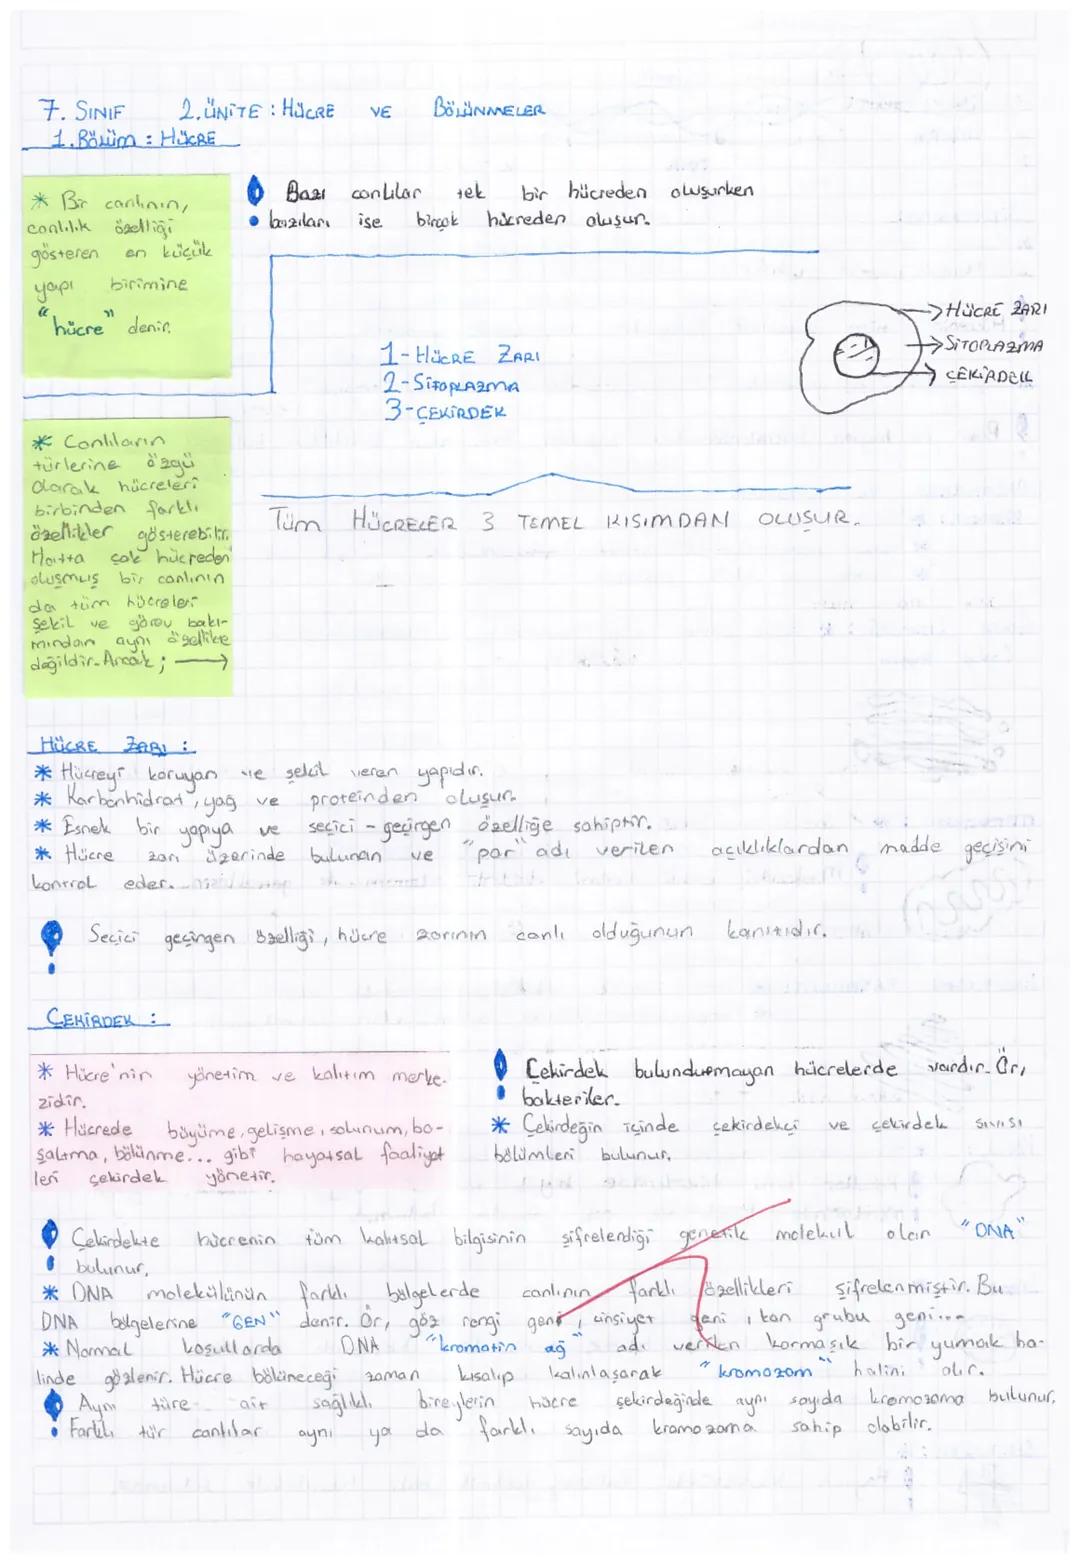 7. SINIF 2.ÜNİTE : HÜCRE VE BÖLÜNMELER
1.Bölüm : HÜCRE
* Bir canlının,
canlılık özelliği
gösteren en küçük
yapı birimine
"hücre" denir.
Bazı canlılar tek bir hücreden oluşurken
bazıları ise birçok hücreden oluşur.
1-HÜCRE ZARI
2-SİTOPLAZMA
3-ÇEKİRDEK
HÜCRE ZARI
SİTOPLAZMA
ÇEKİRDEK
* Canlıların
türlerine özgü
olarak hücreleri
birbirinden farklı
özellikler gösterebilir.
Hatta çok hücreden
oluşmuş bir canlının
da tüm hücreleri
şekil ve görev bakı-
mından aynı özellikte
değildir. Ancak ; →
Tüm HÜCRELER 3 TEMEL KISIMDAN OLUŞUR.
HÜCRE ZARI :
* Hücreyi koruyan ve şekil veren yapıdır.
* Karbonhidrat, yağ ve proteinden oluşur.
* Esnek bir yapıya ve seçici - geçirgen özelliğe sahiptir.
* Hücre zarı üzerinde bulunan ve "por" adı verilen açıklıklardan madde geçişini
kontrol eder.
Seçici geçirgen özelliği, hücre zarının canlı olduğunun kanıtıdır.
ÇEKİRDEK :
* Hücre'nin yönetim ve kalıtım merke-
zidir.
* Hücrede büyüme, gelişme, solunum, bo-
şaltma, bölünme... gibi hayatsal faaliyet
leri çekirdek yönetir.
Çekirdek bulundurmayan hücrelerde vardır. Ör,
bakteriler.
* Çekirdeğin içinde çekirdekçi ve çekirdek sıvısı
bölümleri bulunur.
Çekirdekte hücrenin tüm kalıtsal bilgisinin şifrelendiği genetik molekül olan "DNA"
bulunur.
* DNA molekülünün farklı bölgelerde canlının farklı özellikleri şifrelenmiştir. Bu
DNA bölgelerine "GEN" denir. Ör, göz rengi geni, cinsiyet geni, kan grubu geni...
* Normal koşullarda DNA "kromatin ağ" adı verilen karmaşık bir yumak ha-
linde gözlenir. Hücre bölüneceği zaman kısalıp kalınlaşarak "kromozom" halini alır.
Aynı türe ait sağlıklı bireylerin hücre çekirdeğinde aynı sayıda kromozoma bulunur.
Farklı tür canlılar aynı ya da farklı sayıda kromozoma sahip olabilir.